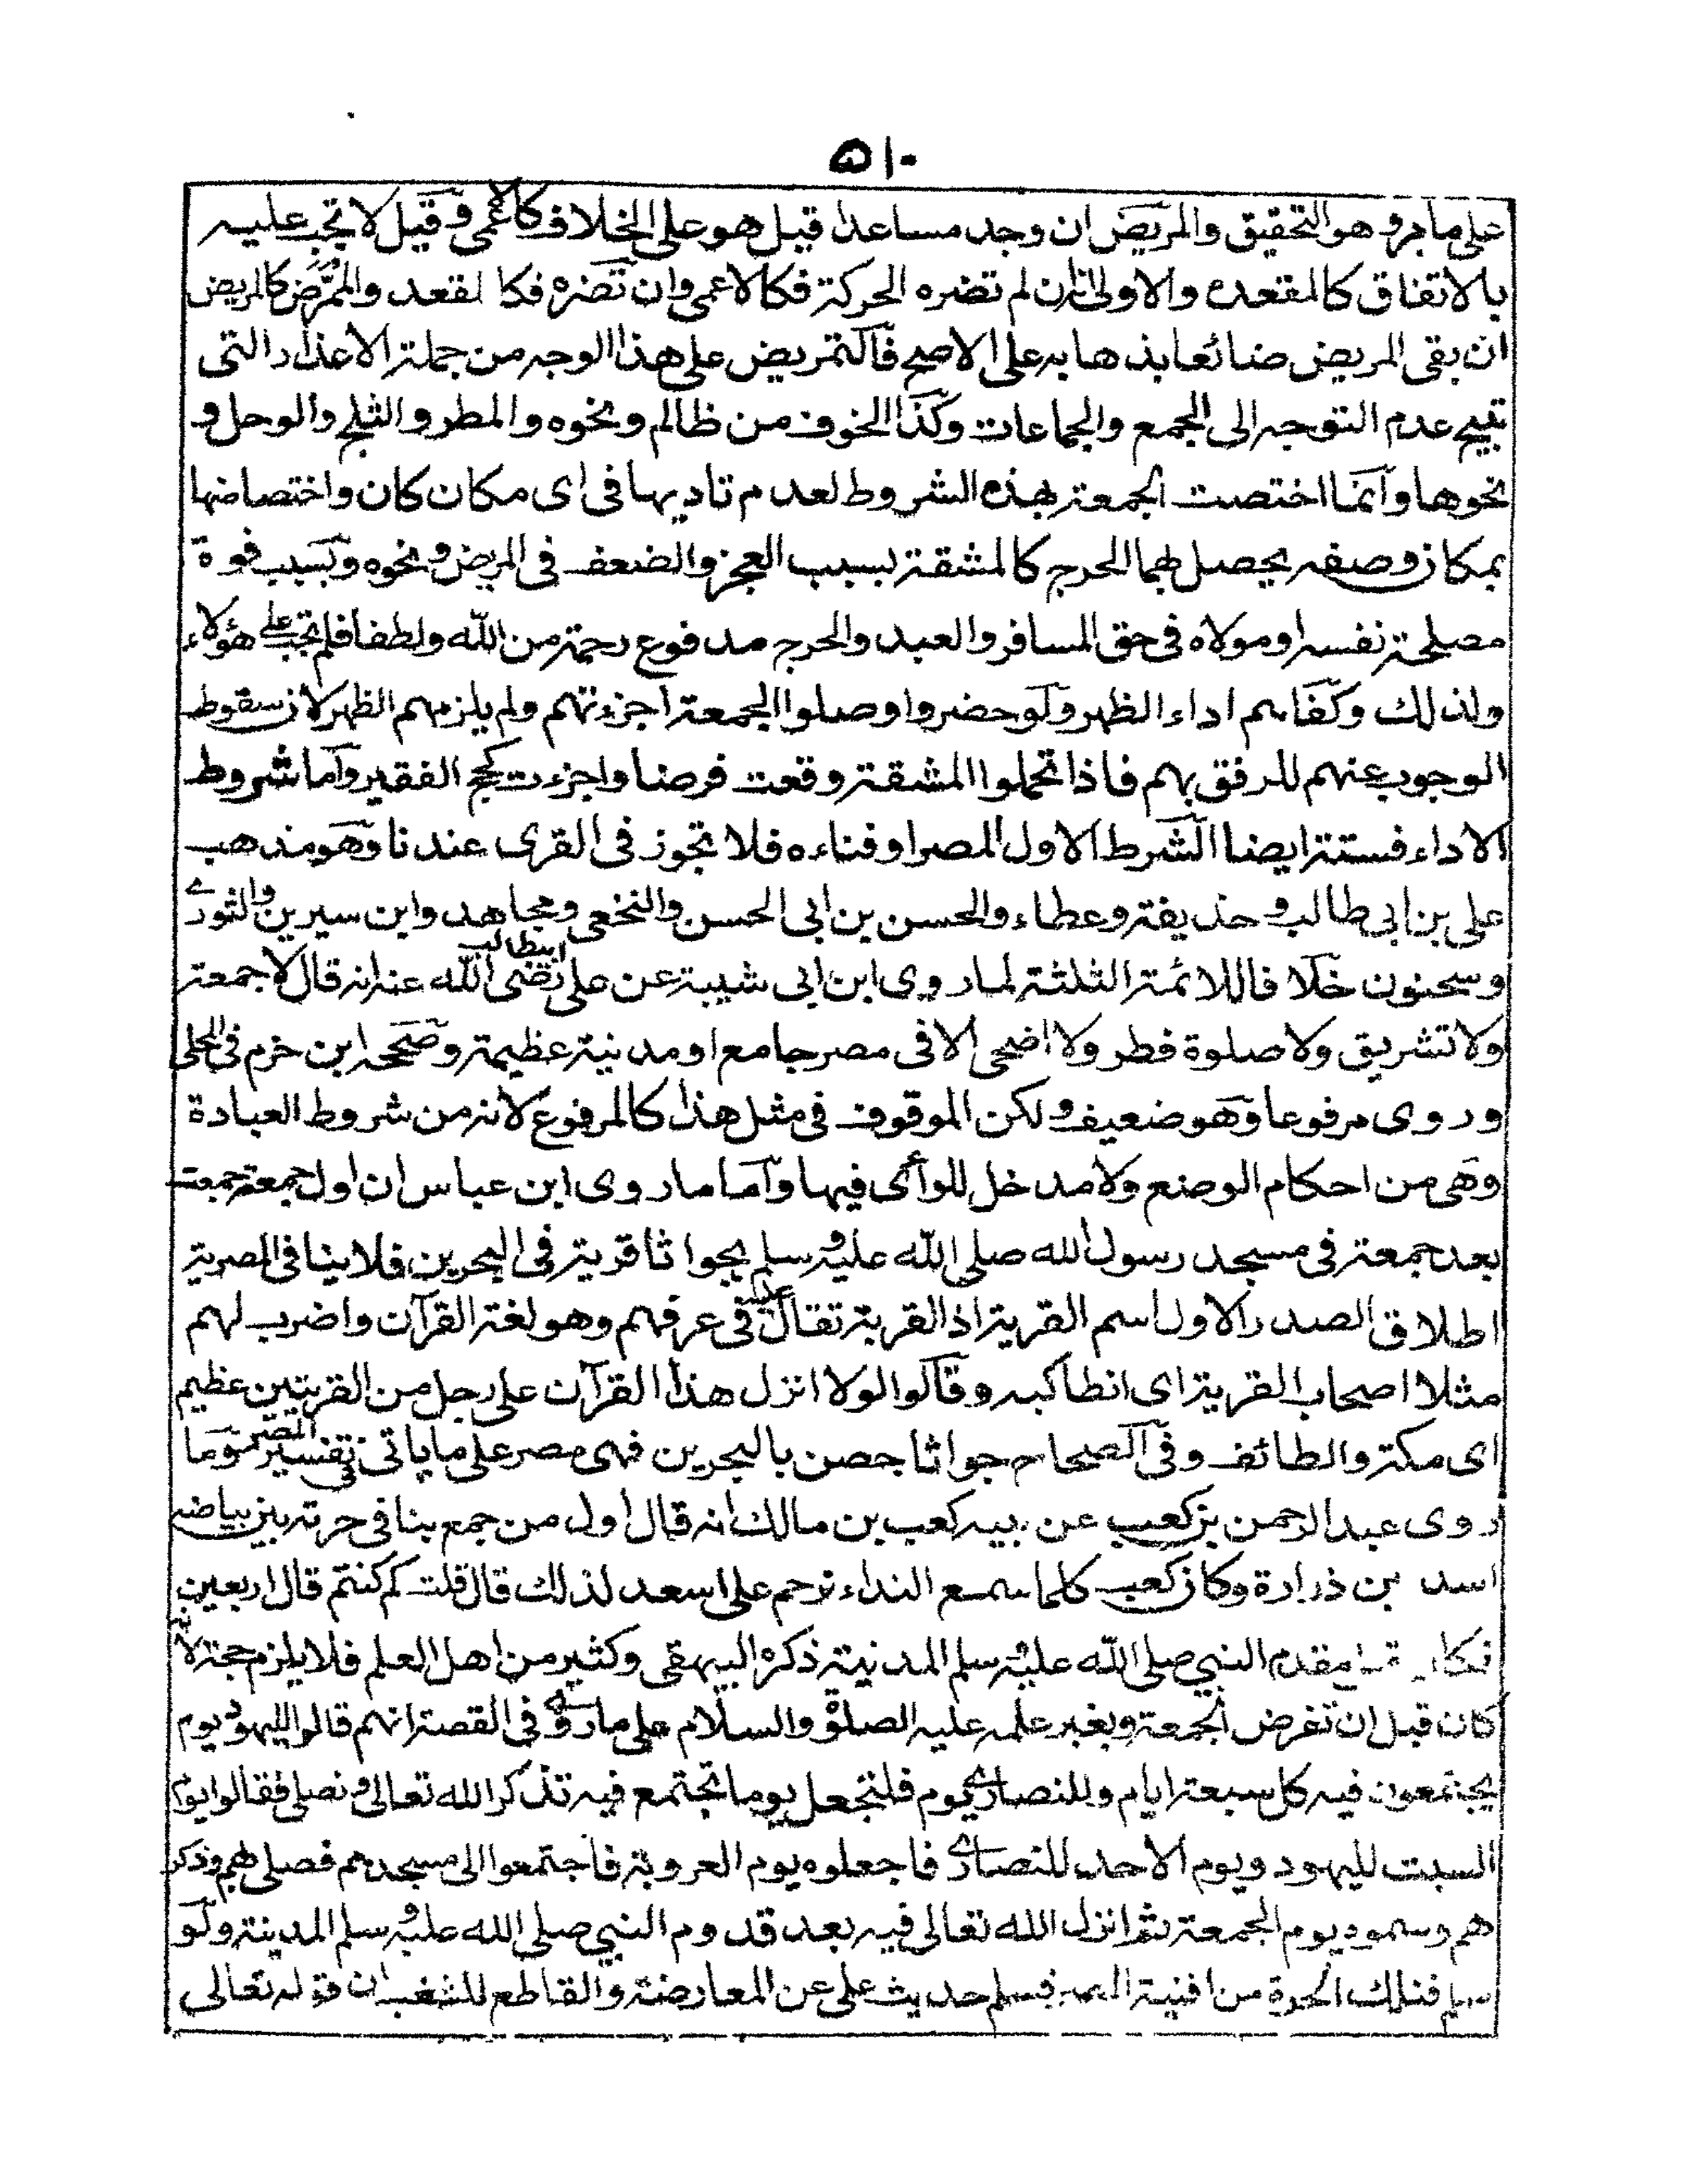 ٥١٠
على ما مر وهو التحقيق والمريض ان وجد مساعدا قيل هو على الخلاف كالاعمى وقيل لا تجب عليه
بالاتفاق كالمقعد والاولى ان لم تضره الحركة فكالاعمى وان تضره فكا لمقعد والممرض كالمريض
ان بقى المريض ضائعا بذهابه على الاصح فالتمريض على هذا الوجه من جملة الاعذار التى
تبيح عدم التوجه الى الجمع والجماعات وكذا الخوف من ظالم ونحوه والمطر والثلج والوحل و
نحوها وانما اختصت الجمعة بهذه الشروط لعدم تاديها فى اى مكان كان واختصاصها
بمكان وصفه يحصل بهما الحرج كالمشقة بسبب العجز والضعف فى المريض ونحوه وبسبب قوة
مصلحة نفسه او مولاه فى حق المسافر والعبد والحرج مدفوع رحمة من الله ولطفا فلم تجب على هؤلاء
ولذلك وكفاهم اداء الظهر ولو حضروا وصلوا الجمعة اجزءتهم ولم يلزمهم الظهر لان سقوط
الوجوب عنهم للرفق بهم فاذا تحملوا المشقة وقعت فرضا واجزءت كحج الفقير واما شروط
الاداء فستة ايضا الشرط الاول المصر او فناءه فلا تجوز فى القرى عندنا وهو مذهب
على بن ابى طالب و حذيفة وعطاء والحسن بن ابى الحسن والنخعى ومجاهد وابن سيرين والثورى
وسحنون خلا فا للائمة الثلثة لما روى ابن ابى شيبة عن على ابيطالب رضى الله عنه انه قال لا جمعة
ولا تشريق ولا صلوة فطر ولا اضحى الا فى مصر جامع او مدينة عظيمة وصححه ابن حزم فى المحلى
وروى مرفوعا وهو ضعيف ولكن الموقوف فى مثل هذا كالمرفوع لانه من شروط العبادة
وهى من احكام الوضع ولا مدخل للرأى فيها واما ما روى ابن عباس ان اول جمعة جمعت
بعد جمعة فى مسجد رسول الله صلى الله عليه وسلم بجواثا قرية فى البحرين فلا ينافى المصرية
اطلاق الصدر الاول اسم القرية اذ القرية تقال عليه فى عرفهم وهو لغة القرآن واضرب لهم
مثلا اصحاب القرية اى انطاكيه وقالوا لولا انزل هذا القرآن على رجل من القريتين عظيم
اى مكة والطائف وفى الصحاح جواثا حصن بالبحرين فهى مصر على ما ياتى فى تفسير المصر وما
روى عبد الرحمن بن كعب عن ابيه كعب بن مالك انه قال اول من جمع بنا فى حرة بنى بياضه
اسد بن ذرارة وكان كعب كلما سمع النداء ترحم على اسعد لذلك قال قلت كم كنتم قال اربعين
فكان مقدم النبي صلى الله عليه وسلم المدينة ذكره البيهقى وكثير من اهل العلم فلا يلزم حجة لانه
كان قبل ان تفرض الجمعة وبغير علمه عليه الصلوة والسلام على ما روى فى القصة انهم قالوا لليهود يوم
يجتمعون فيه كل سبعة ايام وللنصارى يوم فلنجعل يوما نجتمع فيه نذكر الله تعالى و نصلى فقالوا يوم
السبت لليهود ويوم الاحد للنصارى فاجعلوه يوم العروبة فاجتمعوا الى مسجدهم فصلى بهم وذكر
هم وسموه يوم الجمعة ثم انزل الله تعالى فيه بعد قدوم النبي صلى الله عليه وسلم المدينة ولو
سلم فتلك الحرة من افنية المصر فسلم حديث على عن المعارضة والقاطع للشغب ان قوله تعالى